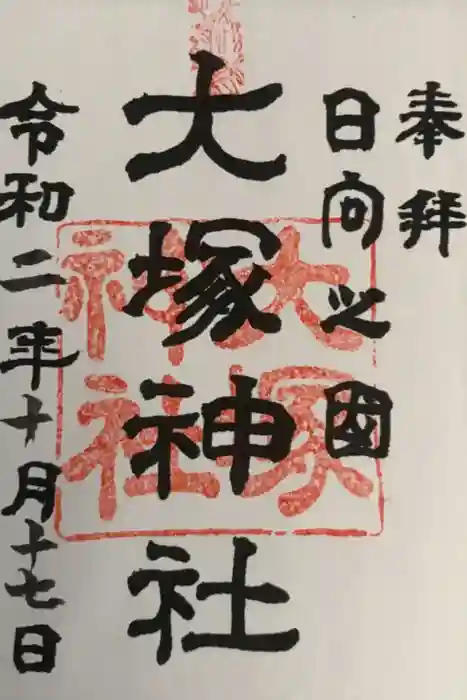 奉拝
日向之国
大塚神社
令和二年十月十七日
大塚神社